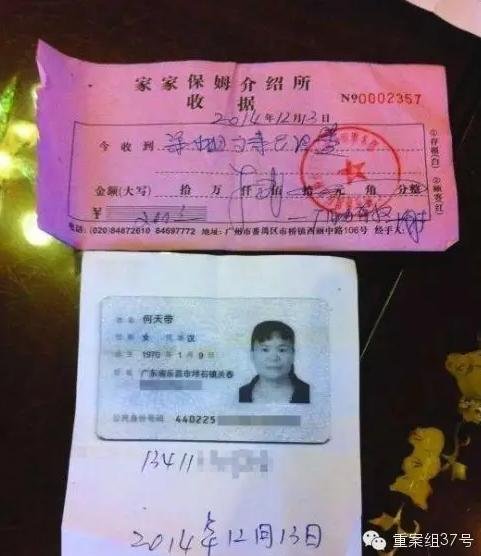 家家保姆介绍所
收据 №0002357
2014年12月13日
今收到
金额(大写) 拾 万 仟 佰 拾 元 角 分整
¥
①存根(白) ②顾客(红)
电话:(020)84872610 84697772 地址:广州市番禺区市桥镇西丽中路106号 经手人:
姓名 何天带
性别 女 民族 汉
出生 1970年1月9日
住址 广东省乐昌市坪石镇关春
公民身份号码 440225
13411
2014年12月13日
重案组37号